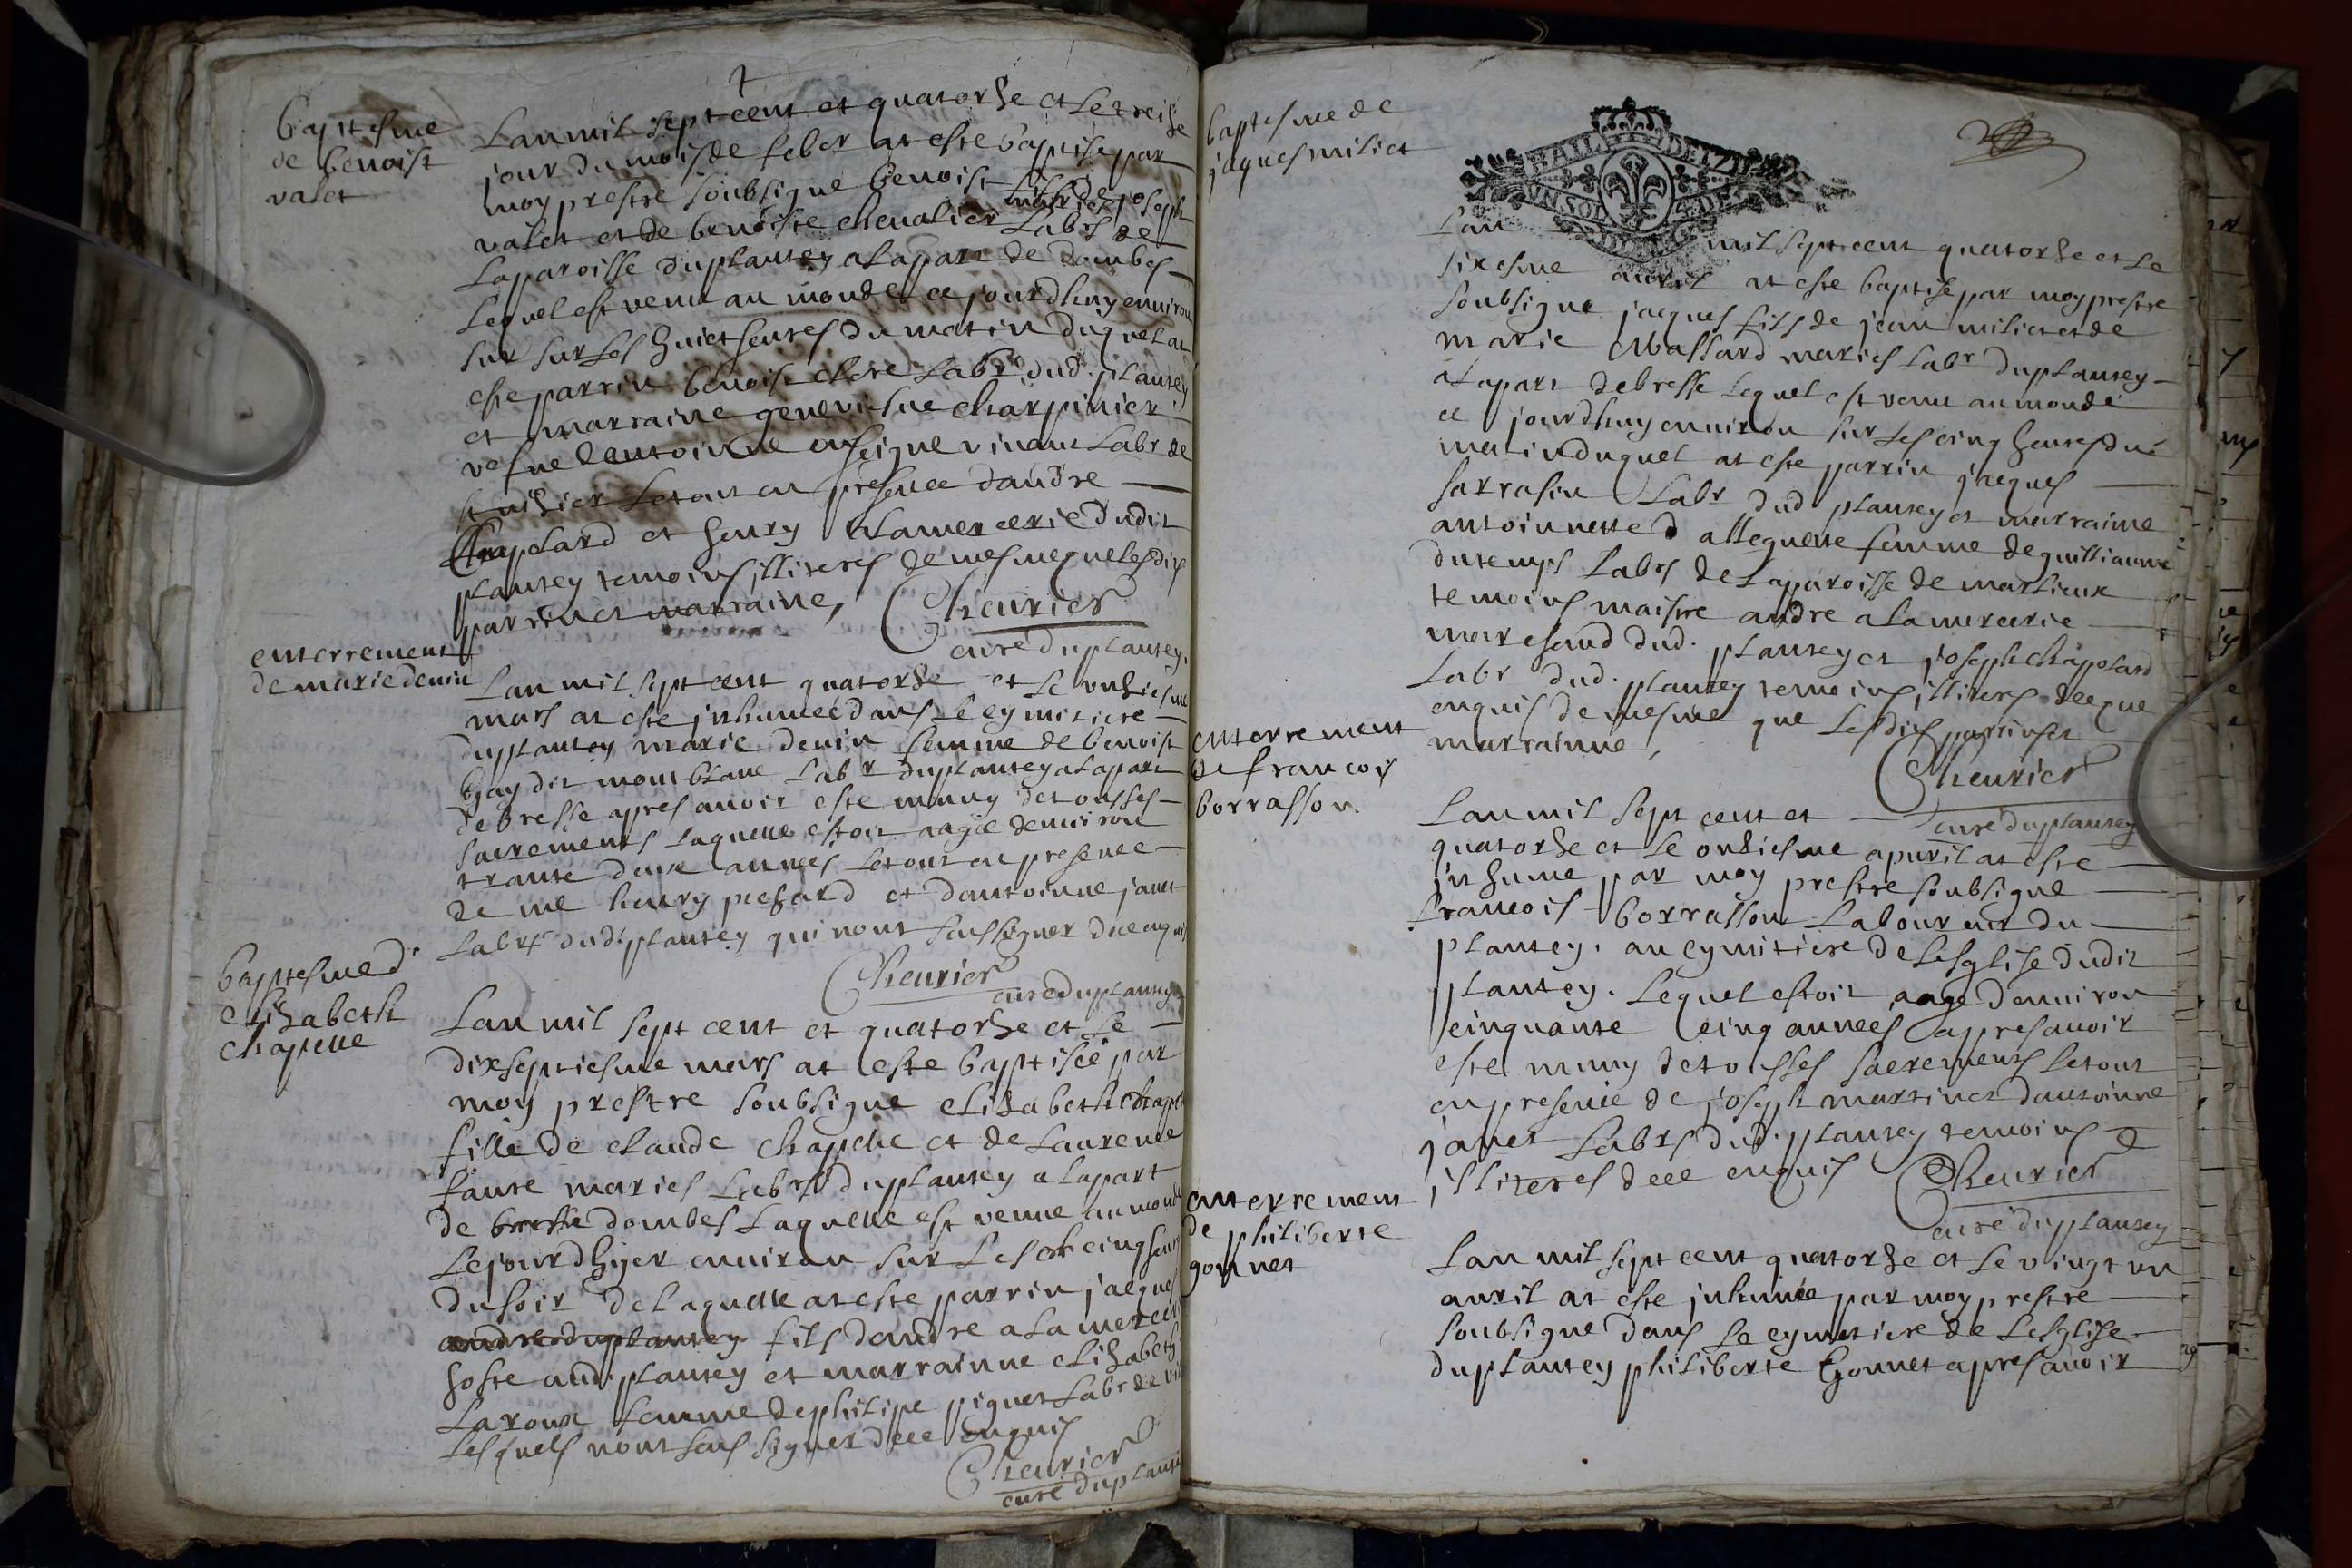 baptesme
de benoist
valet
Lan mil sept cent et quatorze et le treise
jour du mois de febvr at este baptise par
moy prestre soubsigne benoist fils de joseph
valet et de benoiste chevalier labrs de
la paroisse du plantey a la part de dombes
lequel est venu au monde ce jourdhuy environ
sur sur les huict heures du matin duquel at
este parrin benoist labr dud. plantey
et marraine geneviesve charpinier
vefve dantoinne vivant labr de
le tout en presence dandre
Chapelard et henry alamercerie dudit
plantey temoins illiteres de mesme que lesdis
parrin et marraine,
Cheurier
curé du plantey.
enterrement
de marie denin
Lan mil sept cent quatorze et le unziesme
mars at este inhumée dans le cymitiere
du plantey marie denin femme de benoist
gay dit mont blanc labr du plantey a la part
de bresse apres avoir este muny de tous ses
sacrements laquelle estoit aagée denviron
trante deux années le tout en presence
de me henry et dantoinne janet
labrs dud. plantey qui nont sceu signer de ce enquis
Cheurier
curé du plantey
baptesme d'
elizabeth
chapelle
Lan mil sept cent et quatorze et le
dixseptiesme mars at este baptisée par
moy prestre soubsigne elizabeth chapelle
fille de claude chapelle et de laurence
fause mariés labrs du plantey a la part
de bresse dombes laquelle est venue au monde
le jourdhyer environ sur les cinq heures
du soir de laquelle at este parrin jacques
andre du plantey fils dandre alamercerie
hoste aud. plantey et marrainne elizabeth
laroux femme de philipe piguet labr de
lesquels nont sceu signer de ce enquis
Cheurier
curé du plantey
baptesme de
jaques miliet
BAIL DETZ
UN SOL 4 DE
Lan mil sept cent quatorze et le
sixesme avril at este baptise par moy prestre
soubsigne jacques fils de jean miliet et de
marie Massard mariés labr du plantey
a la part de bresse lequel est venu au monde
ce jourdhuy environ sur les cinq heures du
matin duquel at este parrin jaques
sarrasin labr dud plantey et marraine
antoinnette dallequette femme de guilliaume
dutemps labrs de la paroisse de marlieux
temoins maistre andre alamercerie
marchand dud. plantey et joseph chapelard
labr dud. plantey temoins illiteres de ce
enquis de mesme que lesdis parrin et
marrainne,
Cheurier
curé du plantey
enterrement
de francois
borrasson
Lan mil sept cent et
quatorze et le onziesme apvril at este
inhume par moy prestre soubsigne
francois borrasson laboureur du
plantey. au cymitiere de lesglise dudit
plantey. lequel estoit aage denviron
cinquante cinq années apres avoir
este muny de tous ses sacrements le tout
en presence de joseph martin et dantoinne
janet labrs dud. plantey temoins
illiteres de ce enquis
Cheurier
curé du plantey
enterrement
de philiberte
gonnet
Lan mil sept cent quatorze et le vingt un
avril at este inhumée par moy prestre
soubsigne dans le cymetiere de lesglise
du plantey philiberte Gonnet apres avoir